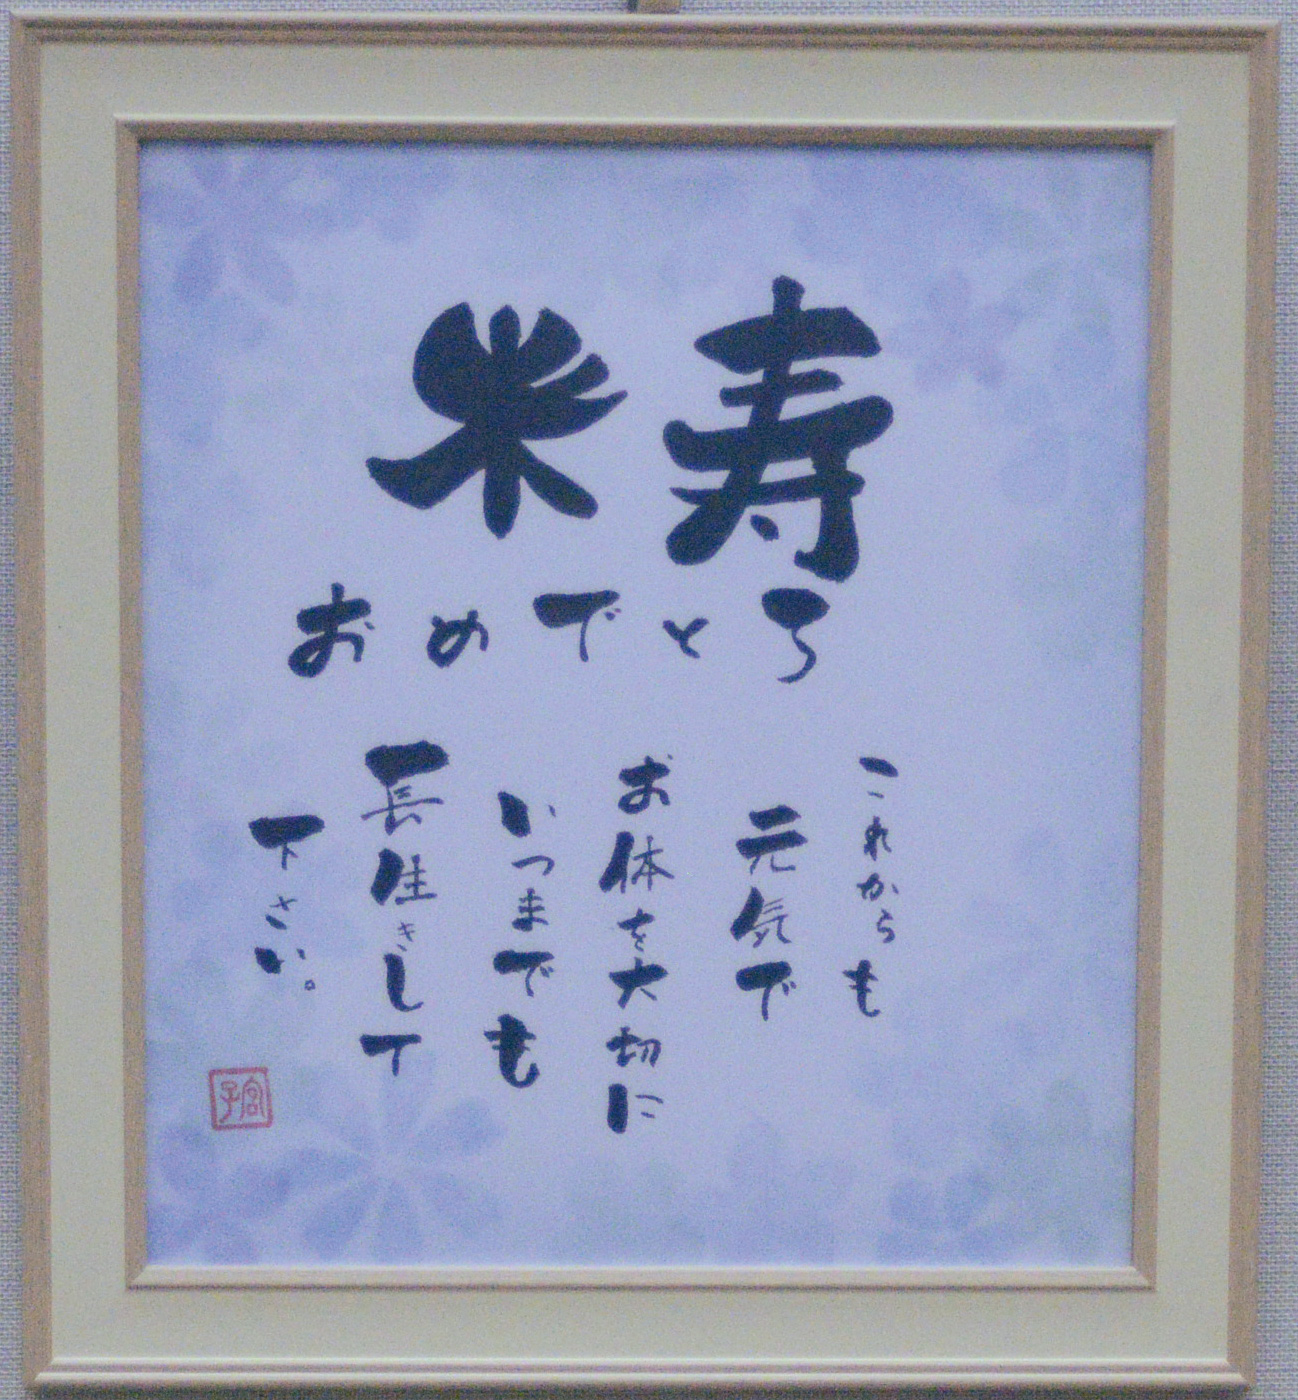 米寿
おめでとう
これからも
元気で
お体を大切に
いつまでも
長生きして
下さい。
宮子